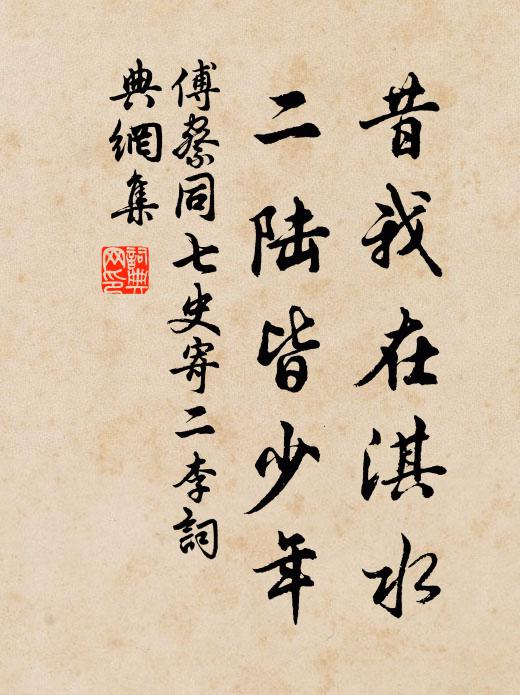 昔我在淇水
二陆皆少年
傅察同七史寄二李詞
典網集
詞典
网印